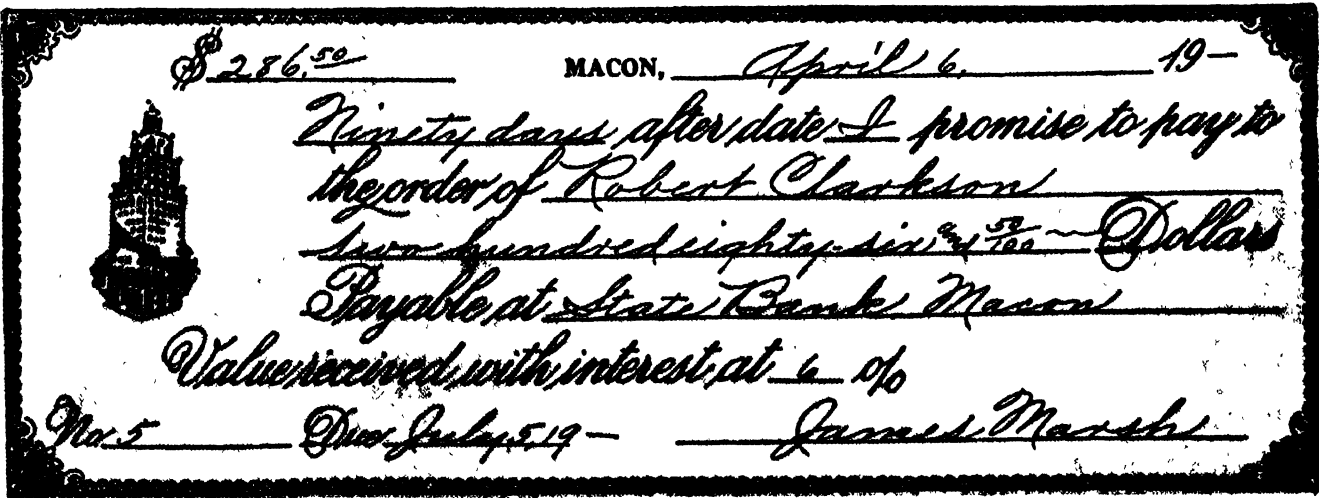 $ 286.50 MACON, April 6, 19—
Ninety days after date I promise to pay to
the order of Robert Clarkson
two hundred eighty-six and 50/100 Dollars
Payable at State Bank Macon
Value received with interest at 6 %
No. 5 Due July 5 19— James Marsh